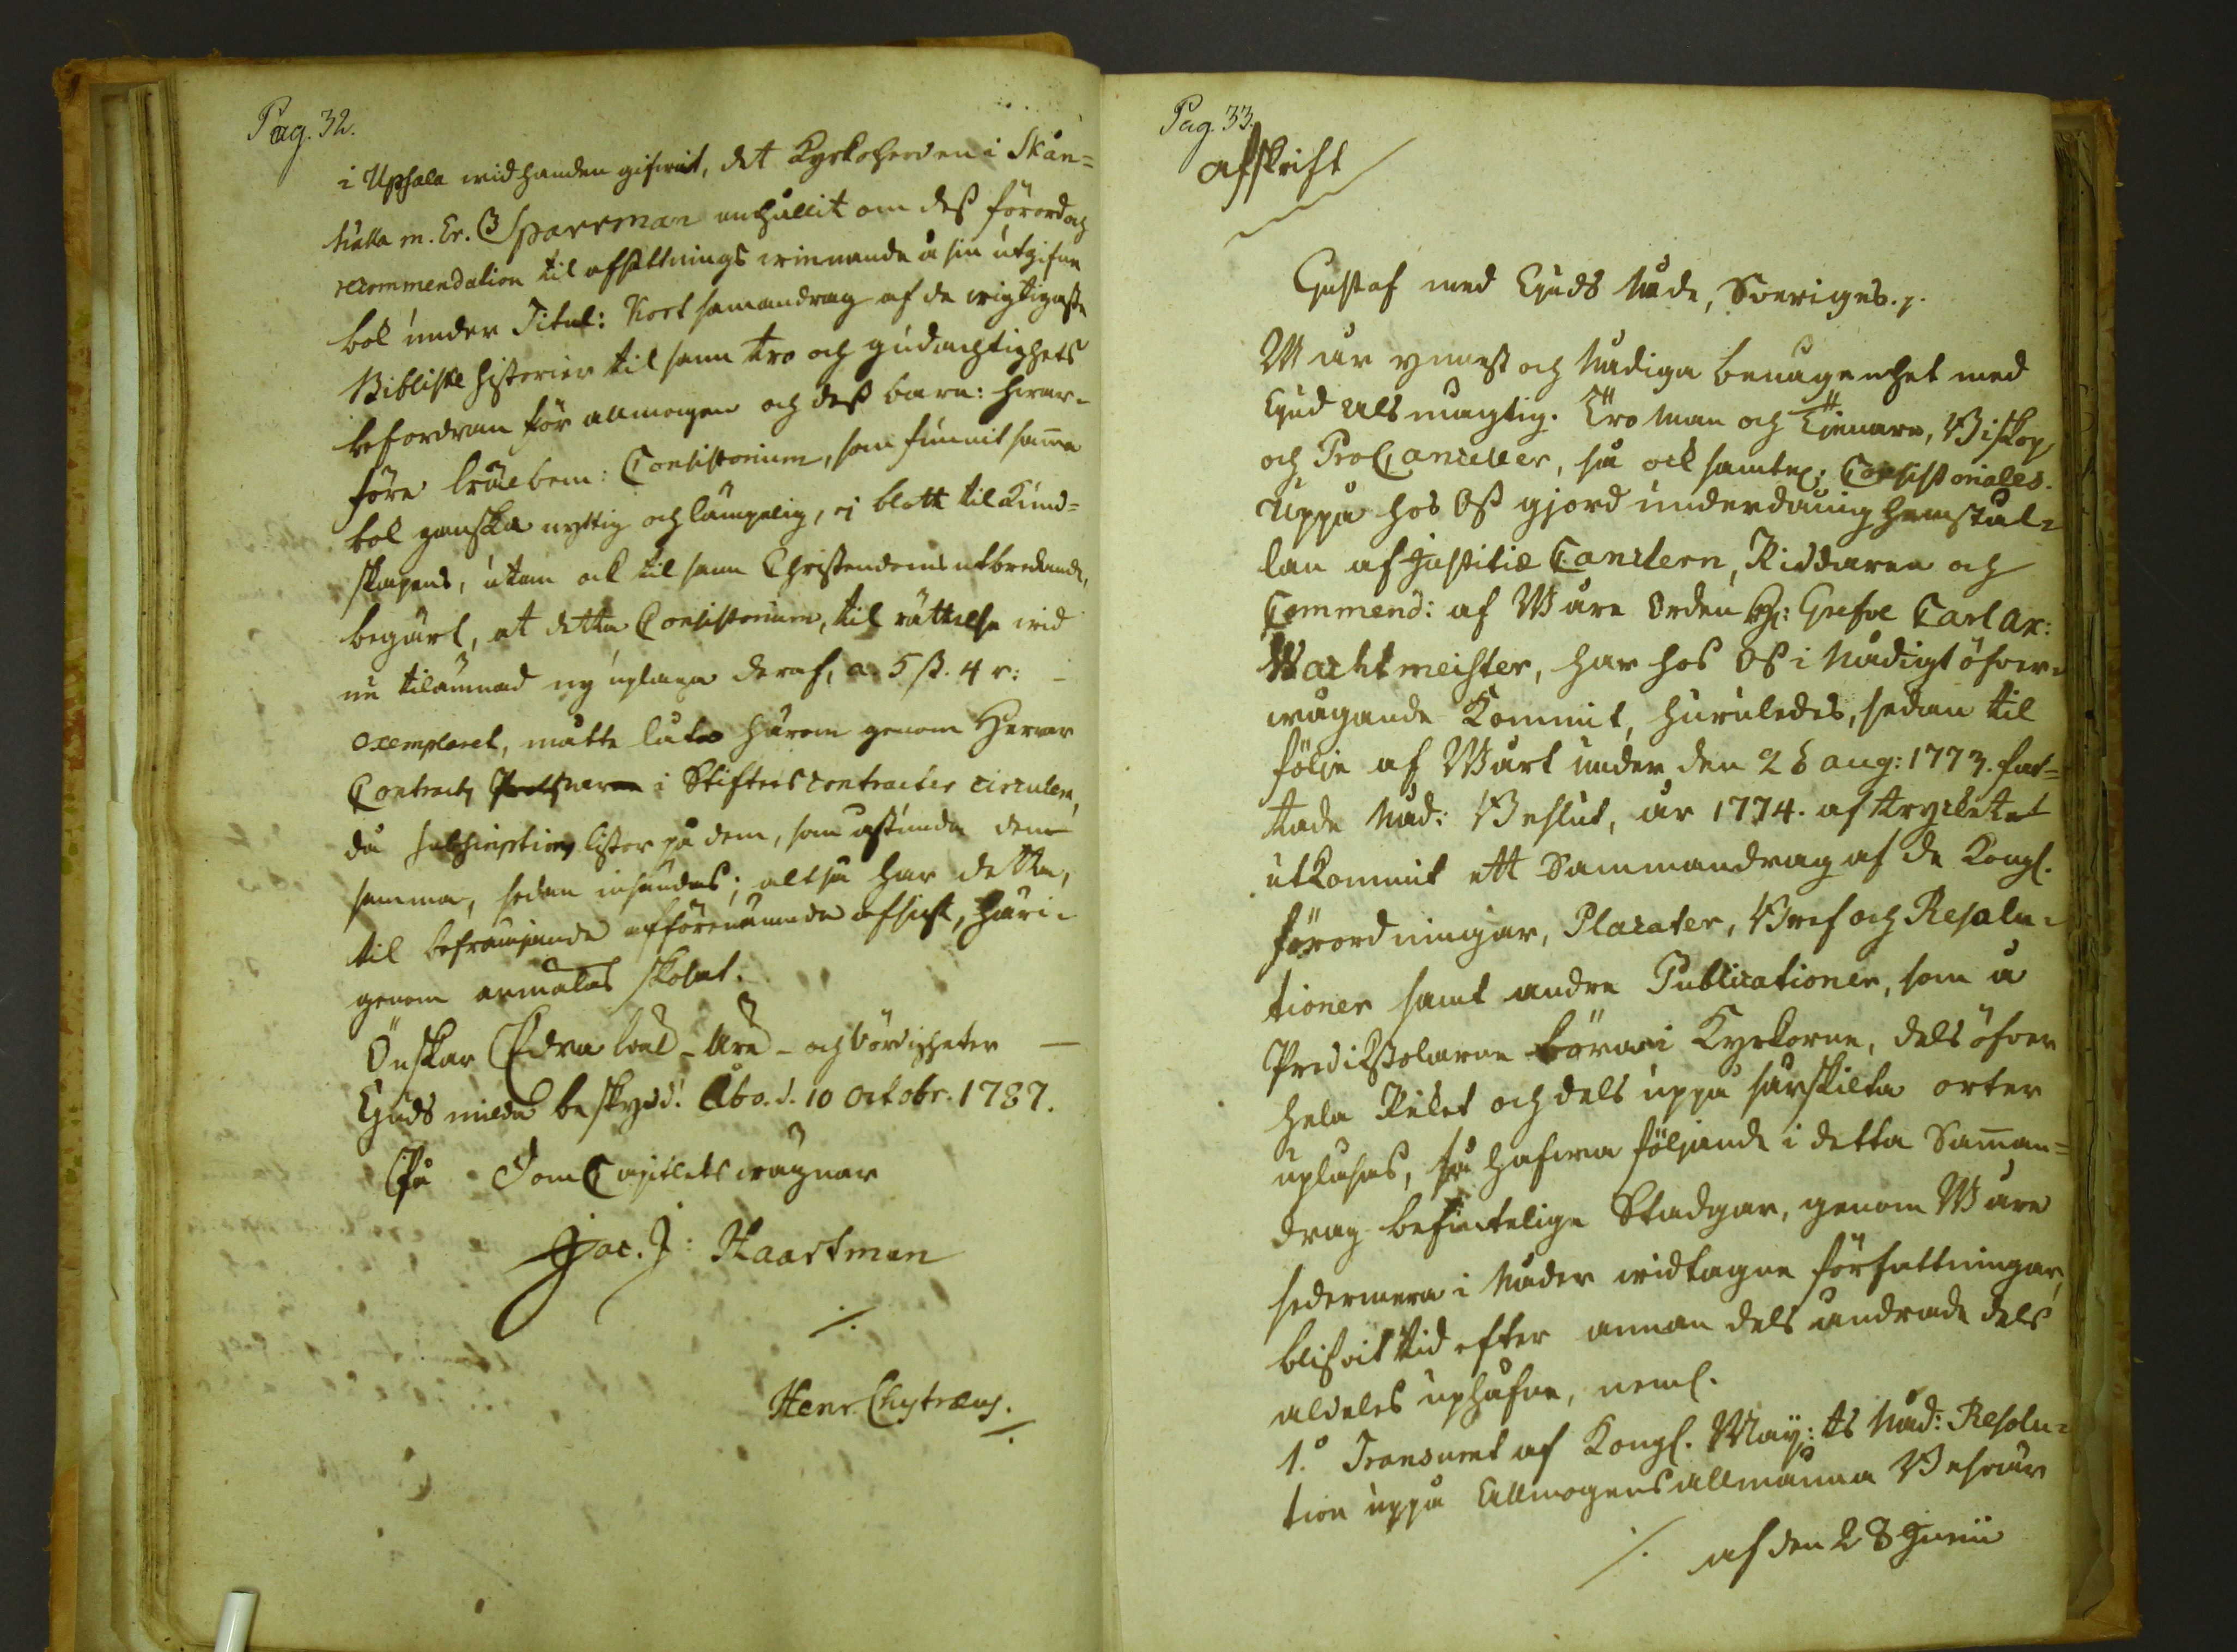 Pag. 32.
i Upsala vid handen gifwit, det Kyrkoherden i Skån-
tulla m. Er. Sparrman anhållit om dess förord och
recommendation til afsättnings winnande å sin utgifne
bok under Titul: Kort samandrag af de wigtigaste
Bibliske historier til sann tro och gudachtighets
befordran för allmogen och dess barn: hwar-
före bem: Consistorium, som funnit samma
bok ganska nyttig och lämpelig, ej blott til Kund-
skapens, utan ock til sann Christendoms utbredande,
begärt, at detta Consistorium, til rättelse wid
en tilämnad ny uplaga deraf, a 5 ß. 4 r:
exemplaret, måtte låta härom genom Herrar
Contracts i Stiftets contracter circulera,
då subscriptions listor på dem, som åstunda den-
samma, sedan insändas; altså har detta,
til befrämjande af förenämnde afsigt, häri-
genom anmälas skolat.
Önskar Edra Wäl-Äre- och Wördigheter
Guds milda beskydd. Åbo. d. 10 Octobr. 1787.
På DomCapitlets wägnar
Jac. J: Haartman
./.
Henr. Chytræus.
./.
Pag. 33.
afskrift
Gustaf med Guds Nåde, Sveriges. p.
Wår ynnest och Nådiga benägenhet med
Gud Alsmägtig. Tro Man och Tjenare, Biskop
och ProCanceller, så ock samtel: Consistoriales.
Uppå hos Oss gjord underdånig hemstäl-
lan af Justitiæ Canclern, Riddaren och
Commend: af Wåre Orden Hr: Grefve Carl Ax:
Wachtmeister, har hos Oss i Nådigt öfver-
wägande kommit, huruledes, sedan til
följe af Wårt under den 26 aug: 1773. fat-
tade Nåd: Beslut, år 1774. af trycket
utkommit ett Sammandrag af de Kongl.
förordningar, Placater, Bref och Resolu-
tioner samt andre Publicationer, som å
Predikstolarne böra i Kyrkorne, dels öfver
hela Riket och dels uppå särskilta orter
upläsas, så hafwa följande i detta Samman-
drag befintelige Stadgar, genom Wåre
sedermera i Nåder widtagne författningar,
blifvit tid efter annan dels ändrade dels
aldeles uphäfne, neml.
1.o Transumt af Kongl. Maij:ts Nåd: Resolu-
tion uppå Allmogens allmänna Beswär
./. af den 28 Junii